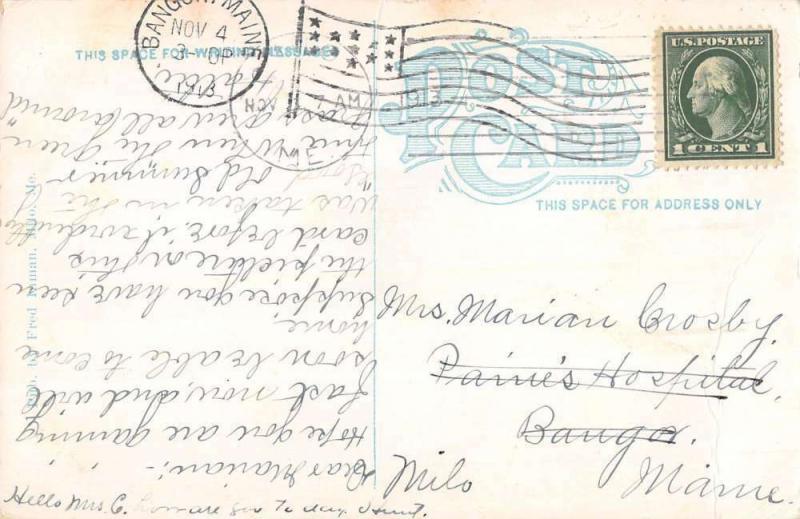 BANGOR, MAINE
NOV 4
3 - 0P
1913
NOV
7 AM
1913
ME.
U.S. POSTAGE
1 CENT 1
THIS SPACE FOR WRITING MESSAGES
POST
CARD
THIS SPACE FOR ADDRESS ONLY
Pub. by Fred Milo, Me.
Dear Marian:-
Hope you are gaining
fast now, and will
soon be able to come
home.
Suppose you have seen
the picture on this
card before, it
was taken in the
"good old summer
time when the green
grass grew all around"
Mrs. Marian Crosby,
Paine's Hospital,
Bangor.
Milo
Maine.
Hello Mrs. C. how are you to day.